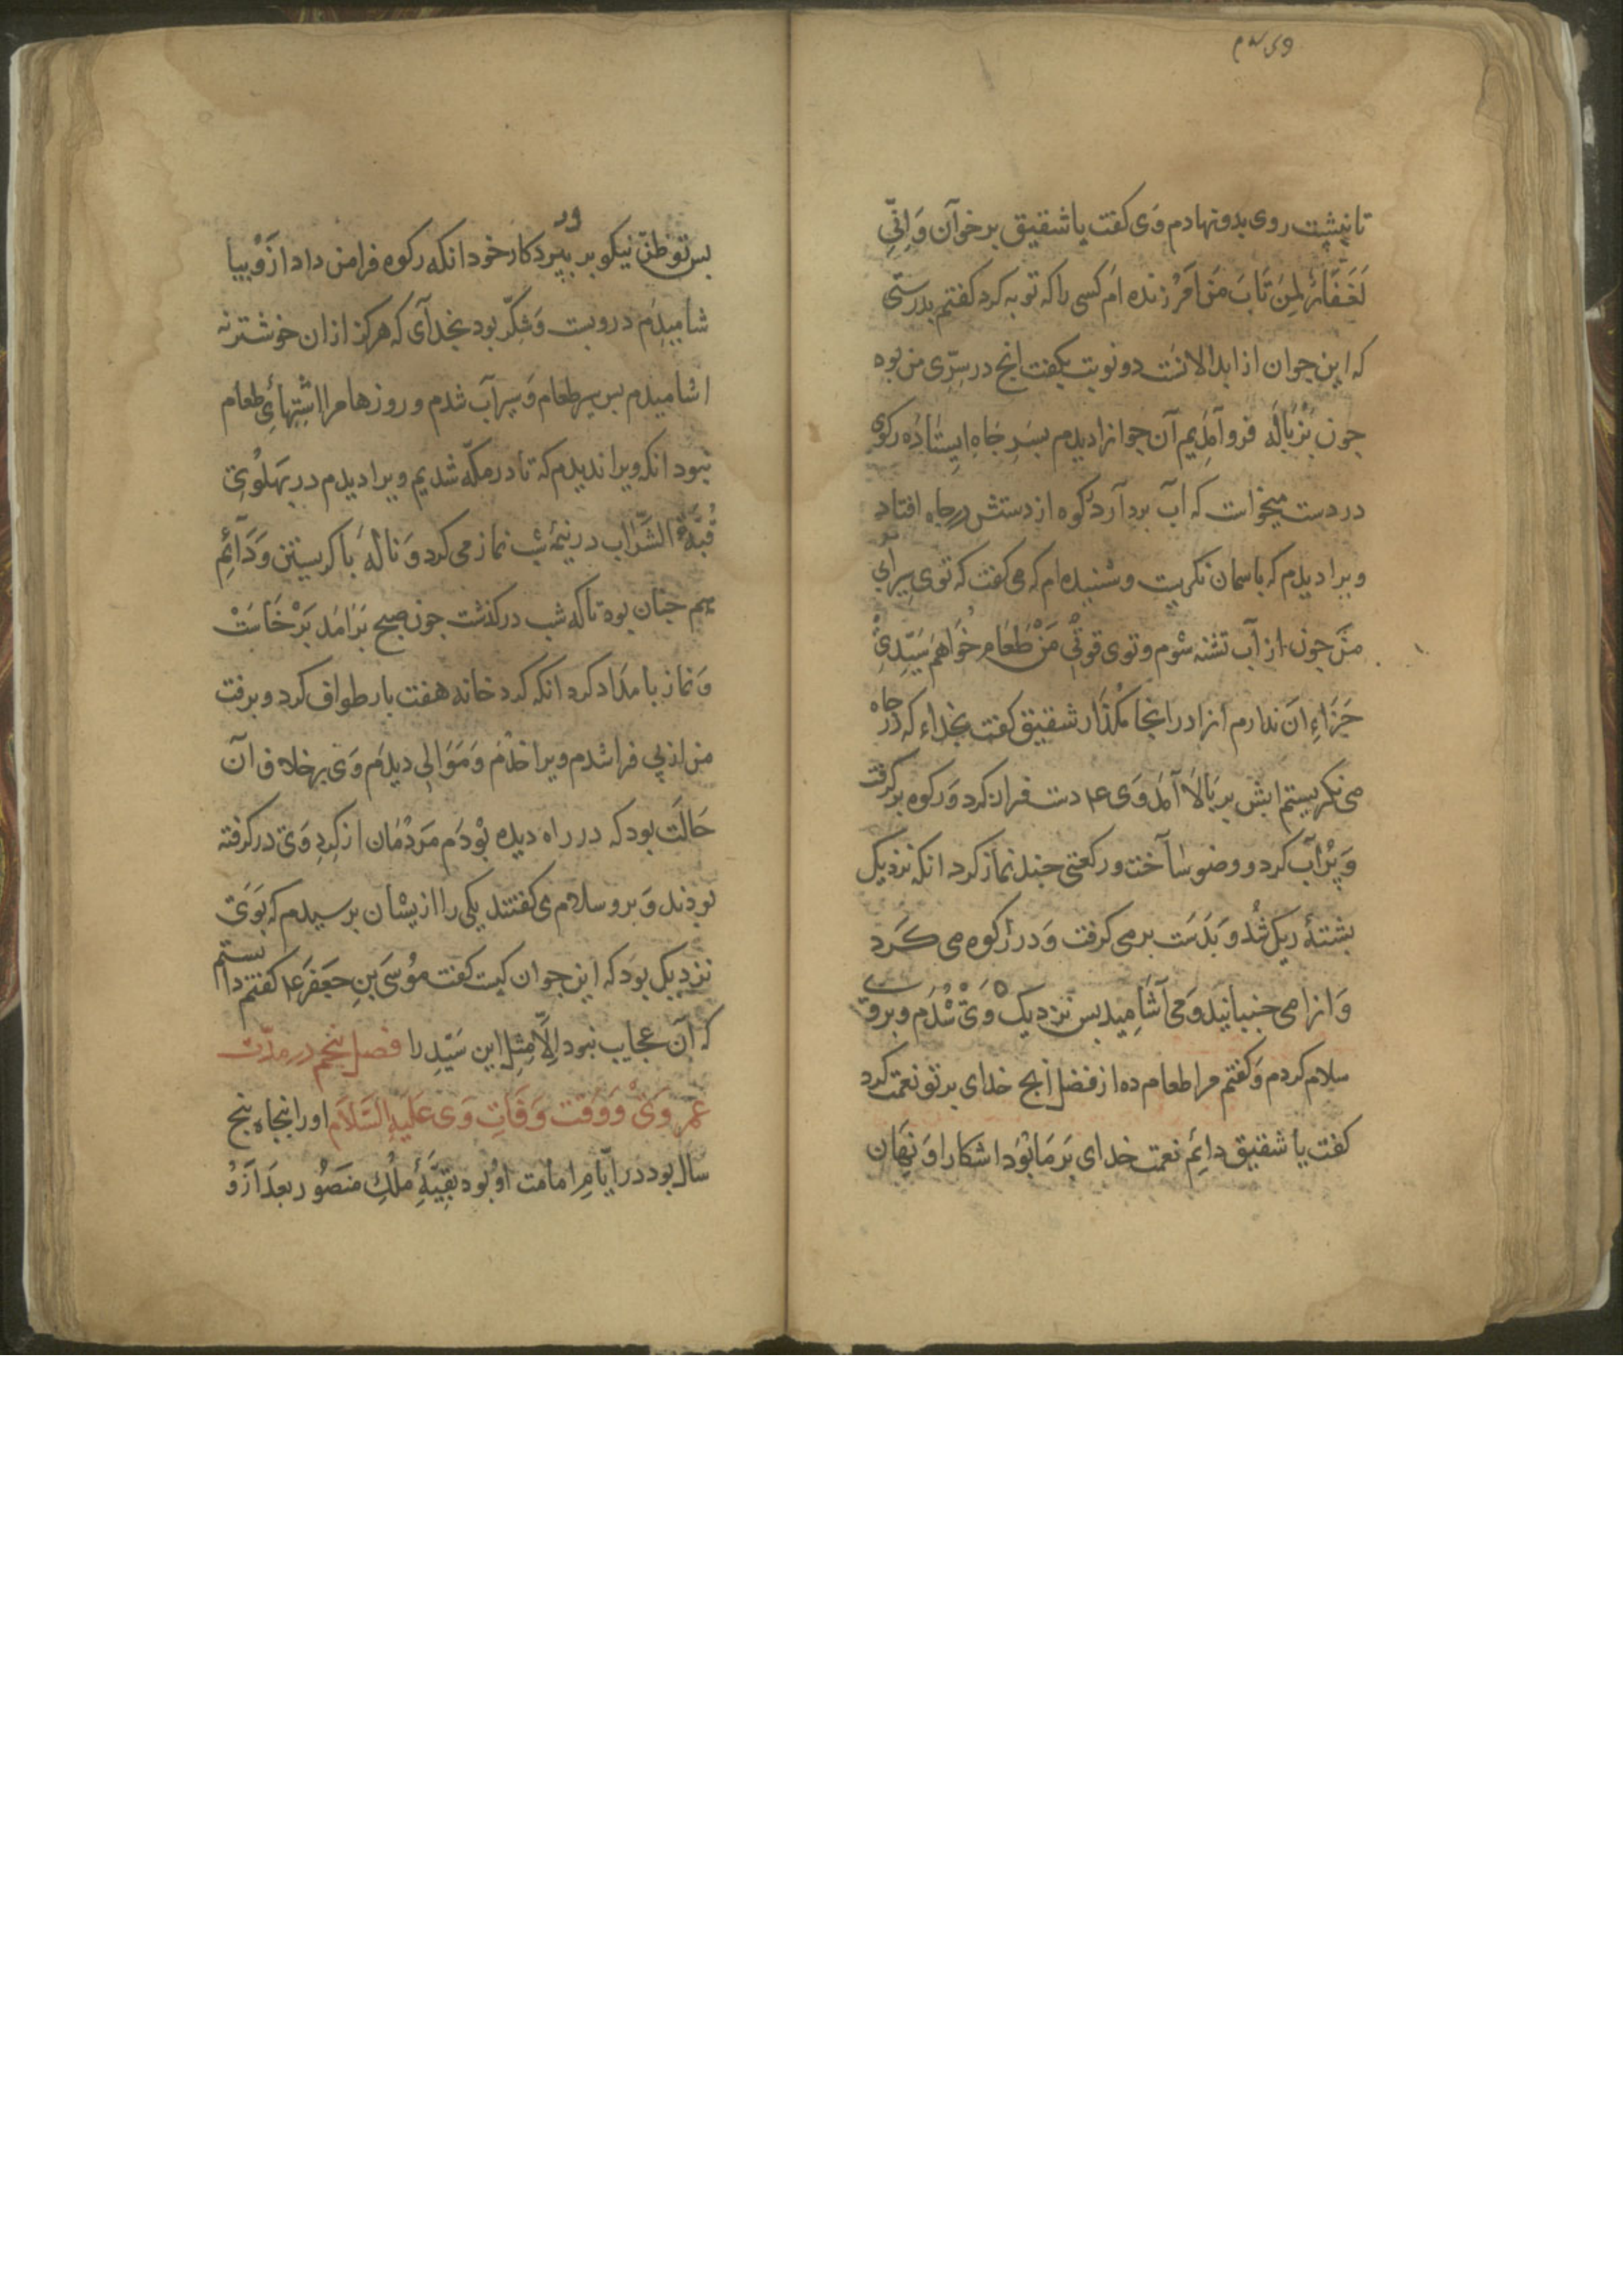 تا بنشست روی بدو نهادم وَی کفت یا شقیق برخوآن وَاِنّیِ
لَغَفَّارٌ لِمَن تَابَ مَن آمَرْزنده ام کسی را که توبه کرد کفتم بدرستی
که این جوان از ابدالانست دو نوبت بکفت انج در سِرّی من بوه
جون بَزُبَالَه فروآمَدِیم آن جوانرا دیدم بسَرِ جَاه اِیِستَادَه رکوی
در دست میخواست که اب بردآرد رکوه از دستش در جاه افتاد
ویرا دیدم که باسمان نکریست و شنیده ام که می کفت که توی سیرابی
مَن جون از آب تشنه شوم و توی قوتِ مَنْ طَعَام خُواهَم سَیّدِیْ
جَزَاءِ ان ندارم انرا در اینجا مکذار شقیق کفت بخداء که در جاه
می نکریستم ابش بر بَالا آمَد وَی ع دست فراز کرد وَ رکوه بر کرفت
وَ پُرآب کرد و وضو ساَخت و رکعتی جند نماز کرد انکه نزدیک
بشتهٔ ریک شُد وَ بَدَسَت برمی کرفت وَ در رکوه می کَرد
وَ انرا می جنبانید وَ می آشَامِید بس نزدیک وَیْ شُدَم و بروی
سلام کردم وَ کفتم مرا طعام ده از فضل انج خدای بر تو نعمت کرد
کفت یا شقیق دائِم نعمت خدای بَر مَا بَوَد اشکارا وَ نِهَان
بس تو ظنّ نیکو بر پرورد کار خود انکه رکوه فرا من داد ازوْ بیا
شامیدَم درو بست وَ شِکّر بود بخدآی که هرکز ازان خوشتر نه
اشامیدم بس سیر طعام وَ سیرآب شدم و روزها مرا اشِتِهایِ طعام
نبود انکه ویرا ندیدم که تا در مکّه شدیم ویرا دیدم در بهلُویِ
قُبَّةُ الشَّرَاب در نیمهٔ شب نماز می کرد وَ نالهٔ با کریستن وَ دَآئِم
هم جنان بوه تا که شب در کذشت جون صبح بَرآمَد بَرْخَاسَتْ
وَ نماز بامدَاد کرد انکه کرد خانه هفت بار طواف کرد و برفت
من از پی فرا شدم ویرا خَدَم وَ مَوَالی دیدَم وَی بر خلاف آن
حَالَت بود که در راه دیده بوْدَم مَردْمَان از کِردِ وَی در کرفته
بودند وَ برو سلام می کفتند یکی را ازیشان برسیدم که بَوَیَ
نزدیک بوَد که این جوان کیست کفت موُسَی بنِ جَعفَر ع کفتم دانستم
که آن عجایب نبود اِلَّا مِثل این سَیّدِ را فصل بنجم در مدّت
عمر وَیْ وَ وَقت وَفَاتِ وَی عَلَیهِ السَّلاَم اورا بنجاه بنج
سال بود در ایّامِ امامت اوُ بُود بَقیَّهٔ مُلکِ منصُور بعد ازوُ